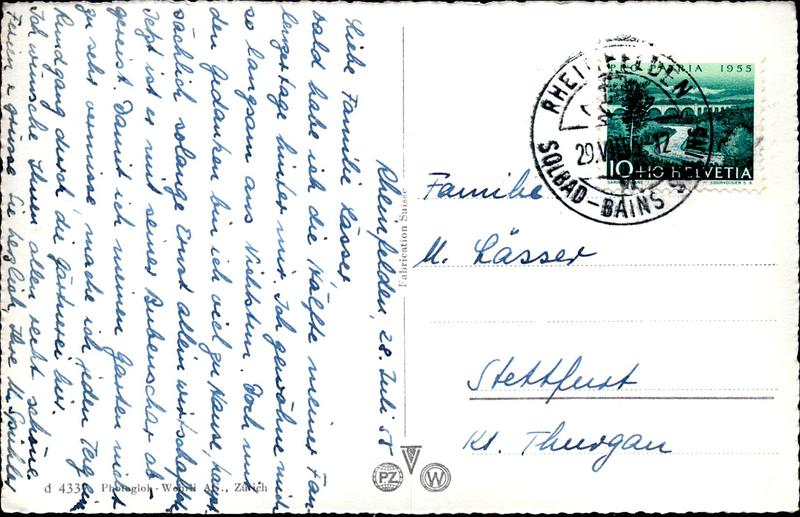 Rheinfelden, 28. Juli 55
Liebe Familie Lässer,
bald habe ich die Hälfte meiner
langertage hinter mir. Ich gewöhne mich
so langsam ans Nichtstun. Doch mit
den Gedanken bin ich viel zu Hause, haupt
sächlich solange Ernst allein wirtschaftet.
Jetzt ist es mit seiner Bubenschar ab-
gereist. Damit ich meinen Garten nicht
zu sehr vermisse, mache ich jeden Tag ein
Rundgang durch die Gärtnerei hier.
Ich wünsche Ihnen allen recht schöne
Ferien & grüsse Sie herzlich Ihre M.
d 433 Photoglob-Wehrli AG., Zürich
Fabrication Suisse
PZ
W
PRO PATRIA 1955
10+10 HELVETIA
COURVOISIER S.A.
RHEINFELDEN
29.VII 12
SOLBAD-BAINS SALINS
Familie
M. Lässer
Stettfurt
Kt. Thurgau